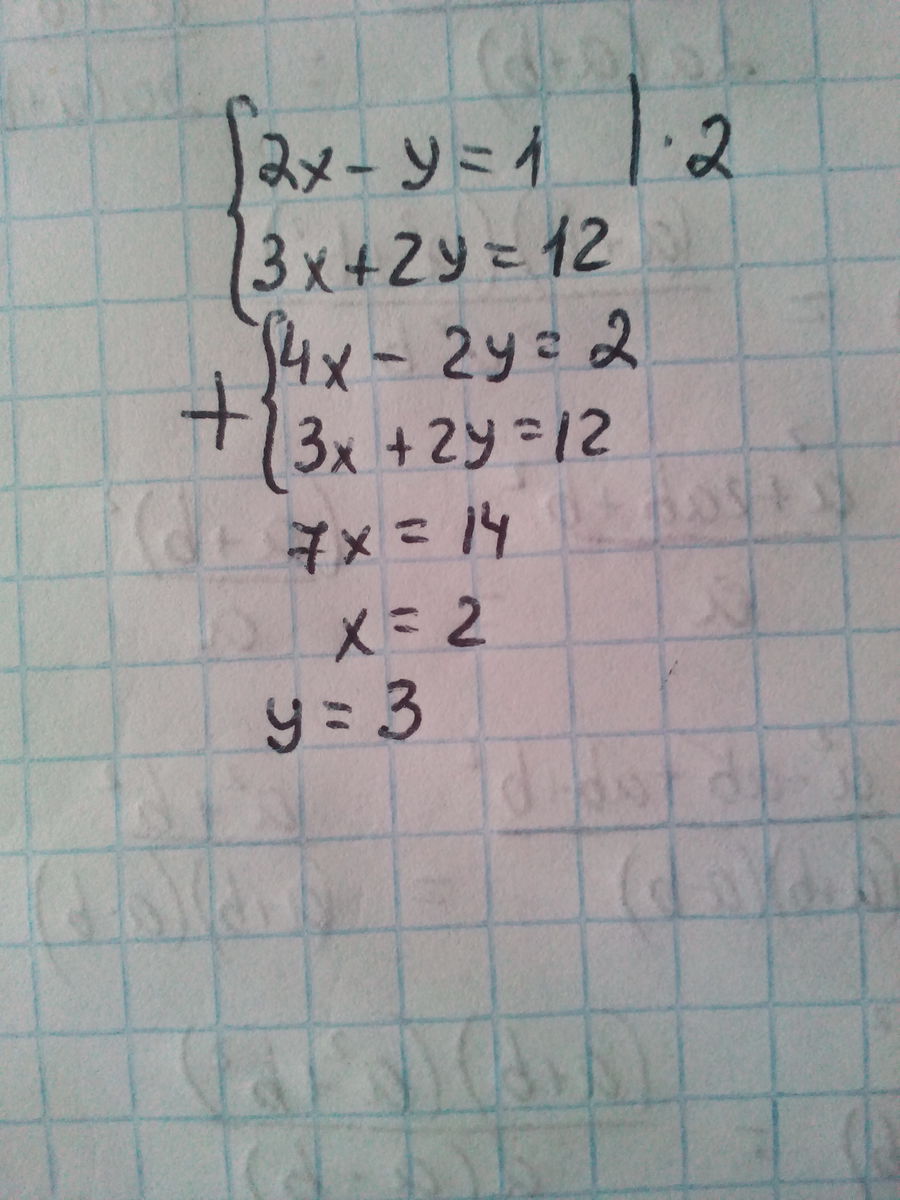 2x - y = 1 | · 2
3x + 2y = 12
+ 4x - 2y = 2
3x + 2y = 12
7x = 14
x = 2
y = 3